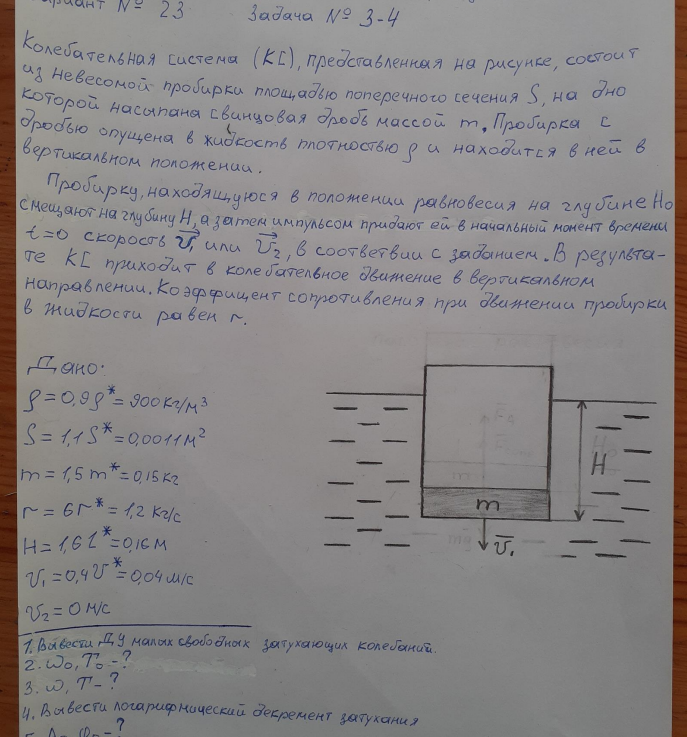 Вариант № 23 Задача № 3-4
Колебательная система (КС), представленная на рисунке, состоит
из невесомой пробирки площадью поперечного сечения S, на дно
которой насыпана свинцовая дробь массой m. Пробирка с
дробью опущена в жидкость плотностью ρ и находится в ней в
вертикальном положении.
Пробирку, находящуюся в положении равновесия на глубине H₀
смещают на глубину H, а затем импульсом придают ей в начальный момент времени
t=0 скорость v⃗₁ или v⃗₂, в соответвии с заданием. В результа-
те КС приходит в колебательное движение в вертикальном
направлении. Коэффициент сопротивления при движении пробирки
в жидкости равен r.
Дано:
ρ = 0,9ρ* = 900 кг/м³
S = 1,1S* = 0,0011 м²
m = 1,5m* = 0,15 кг
r = 6r* = 1,2 кг/с
H = 1,6l* = 0,16 м
v₁ = 0,4v* = 0,04 м/с
v₂ = 0 м/с
H
m
v̅₁
1. Вывести ДУ малых свободных затухающих колебаний.
2. ω₀, T₀ - ?
3. ω, T - ?
4. Вывести логарифмический декремент затухания